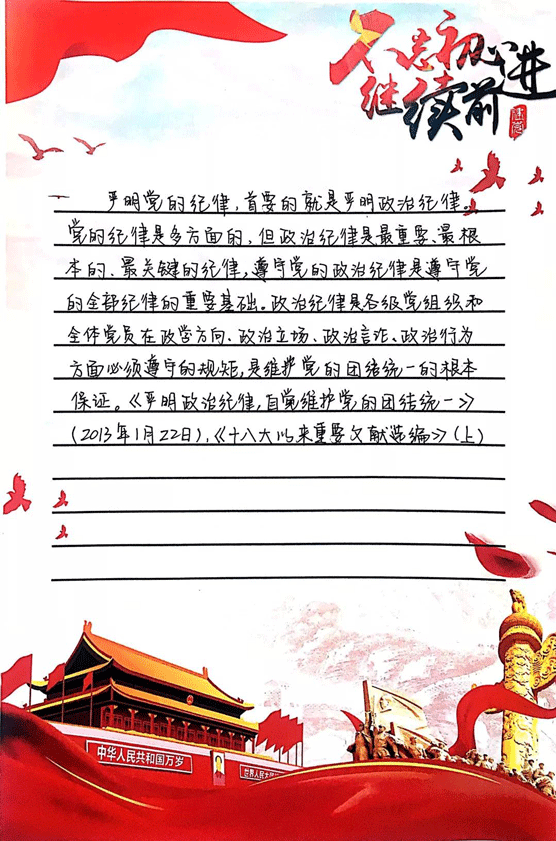 不忘初心
继续前进
严明党的纪律,首要的就是严明政治纪律。
党的纪律是多方面的,但政治纪律是最重要、最根
本的、最关键的纪律,遵守党的政治纪律是遵守党
的全部纪律的重要基础。政治纪律是各级党组织和
全体党员在政治方向、政治立场、政治言论、政治行为
方面必须遵守的规矩,是维护党的团结统一的根本
保证。《严明政治纪律,自觉维护党的团结统一》
(2013年1月22日),《十八大以来重要文献选编》(上)
中华人民共和国万岁
世界人民大